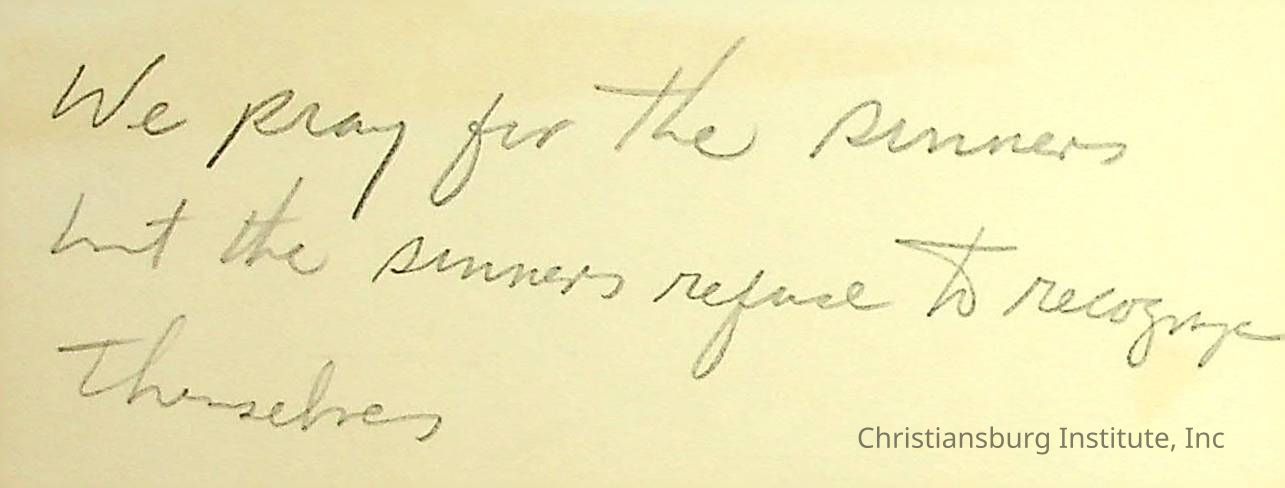 We pray for the sinners
but the sinners refuse to recognize
themselves
Christiansburg Institute, Inc